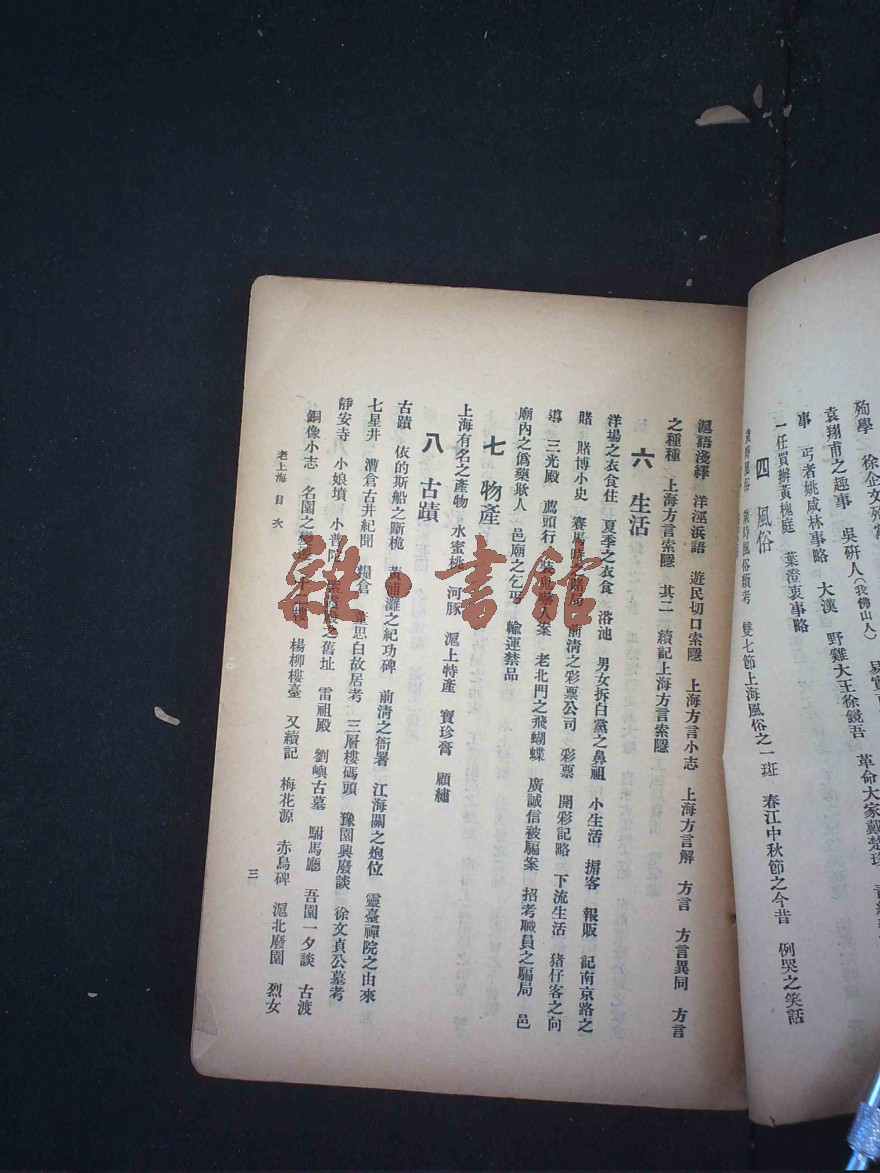 殉學　徐企文殉
袁翔甫之趣事　吳硏人（我佛山人）
事　丐者姚咸林事略　大漢　野雞大王徐鏡吾　革命大家戴楚珍
一任買辦黃槐庭　葉澄衷事略
四　風俗
歲時風俗　歲時風俗續考　雙七節上海風俗之一斑　春江中秋節之今昔　例哭之笑話
滬語淺繹　洋涇浜語　遊民切口索隱　上海方言小志　上海方言解　方言　方言異同　方言
之種種　上海方言索隱　其二　續記上海方言索隱
六　生活
洋場之衣食住　夏季之衣食　浴池　男女拆白黨之鼻祖　小生活　掮客　報販　記南京路之
賭　賭博小史　賽馬時之賭局　前淸之彩票公司　彩票　開彩記略　下流生活　猪仔客之向
導　三光殿　薦頭行　裝鬼嚇人案　老北門之飛蝴蝶　廣誠信被騙案　招考職員之騙局　邑
廟內之僞藥欺人　邑廟之乞丐　輸運禁品
七　物產
上海有名之產物　水蜜桃　河豚　滬上特產　寶珍膏　顧繡
八　古蹟
古蹟　依的斯船之斷桅　黃浦灘之紀功碑　前淸之衙署　江海關之炮位　靈臺禪院之由來
七星井　漕倉古井紀聞　糧倉　董思白故居考　三層樓碼頭　豫園興廢談　徐文貞公墓考
靜安寺　小娘墳　小普陀　之舊址　雷祖殿　劉嶼古墓　駙馬廳　吾園一夕談　古渡
銅像小志　名園之變遷　十二樓　楊柳樓臺　又續記　梅花源　赤烏碑　滬北廢園　烈女
老上海　目次
三
雜·書館